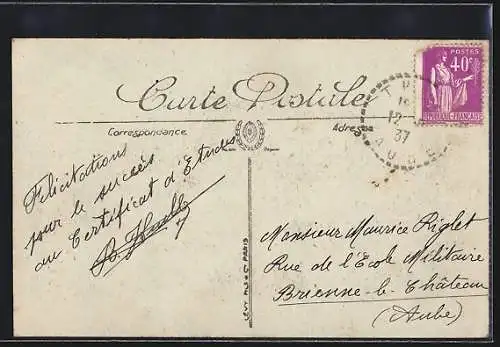 Carte Postale
Correspondance
Adresse
POSTES
40c
12
37
AUBE
Félicitations
pour le succès
au Certificat d'Etudes
Monsieur Maurice Riglet
Rue de l'Ecole Militaire
Brienne-le-Château
(Aube)